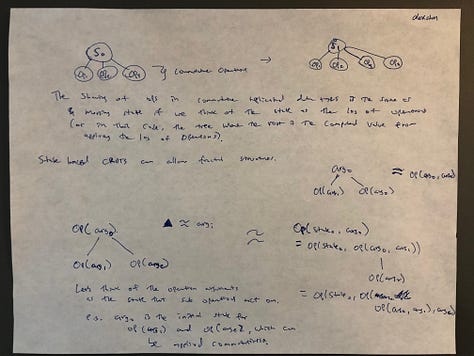 S₀
Op₁ Op₂ Op₃
if Commutative Operations
→
S₁
Op₁ Op₂ Op₃
The Sharing of ops in commutative replicated data types is the same as
merging state if we think of the state as the log of operations
(or in that case, the tree where the root is the computed value from
applying the log of operations).
State based CRDTs can allow fractal structures.
arg₀
≈ Op(arg₀, arg₂)
Op(arg₁) Op(arg₂)
Op(arg₀)
▲ ≈ arg₁
Op(arg₁) Op(arg₂)
≈
Op(state₀, arg₀)
= Op(state₀, Op(arg₀, arg₁))
Op(arg₂)
= Op(state₀, Op(
Op(arg₀, arg₁), arg₂)
Let's think of the operation arguments
as the state that sub operations act on.
e.g. arg₀ is the initial state for
Op(arg₁) and Op(arg₂), which can
be applied commutatively.